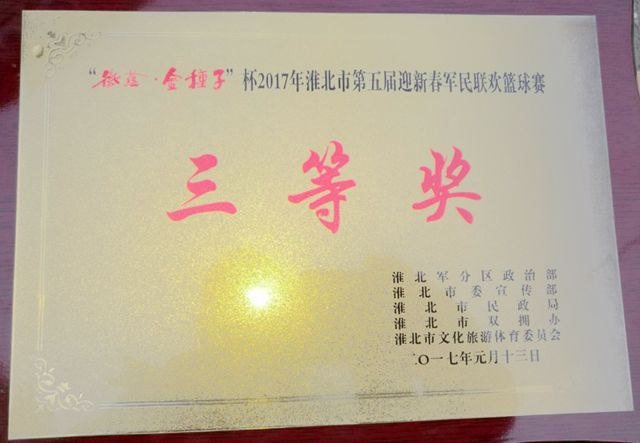 “徽蕴·金種子”杯2017年淮北市第五届迎新春军民联欢篮球赛
三等奖
淮北军分区政治部
淮北市委宣传部
淮北市民政局
淮北市双拥办
淮北市文化旅游体育委员会
二〇一七年元月十三日